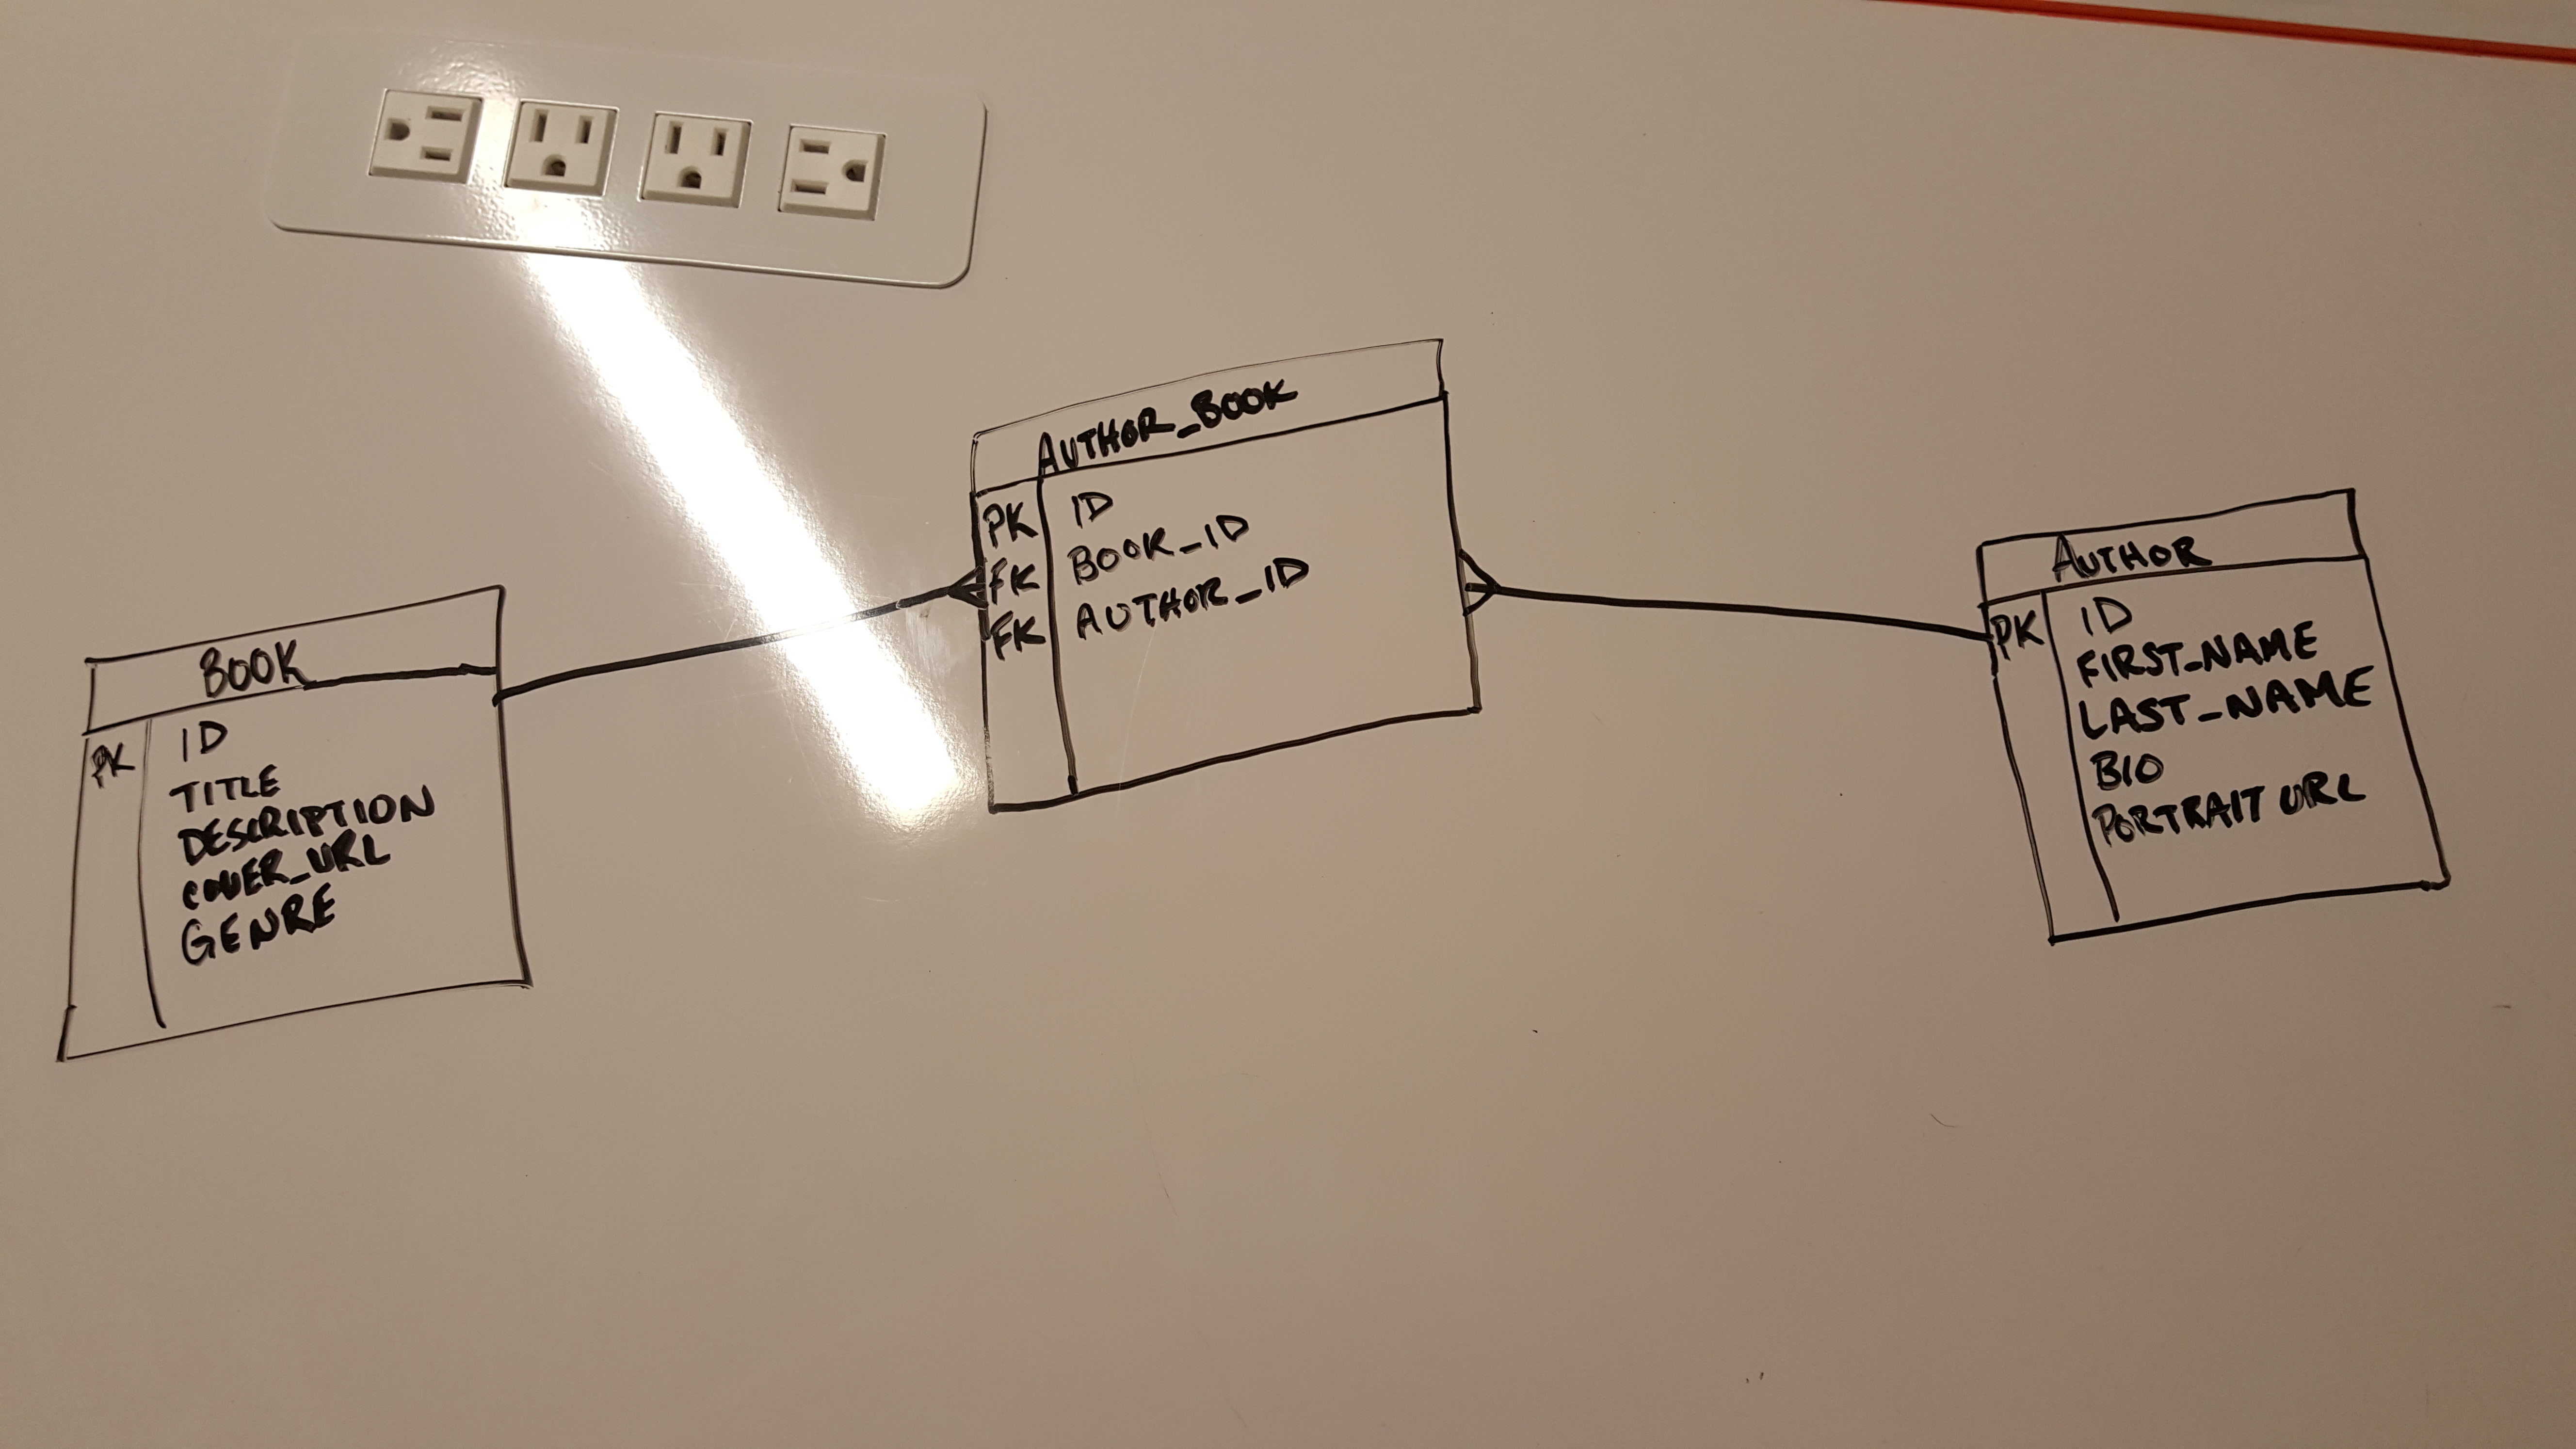 BOOK
PK ID
TITLE
DESCRIPTION
COVER_URL
GENRE
AUTHOR_BOOK
PK ID
FK BOOK_ID
FK AUTHOR_ID
AUTHOR
PK ID
FIRST_NAME
LAST_NAME
BIO
PORTRAIT URL